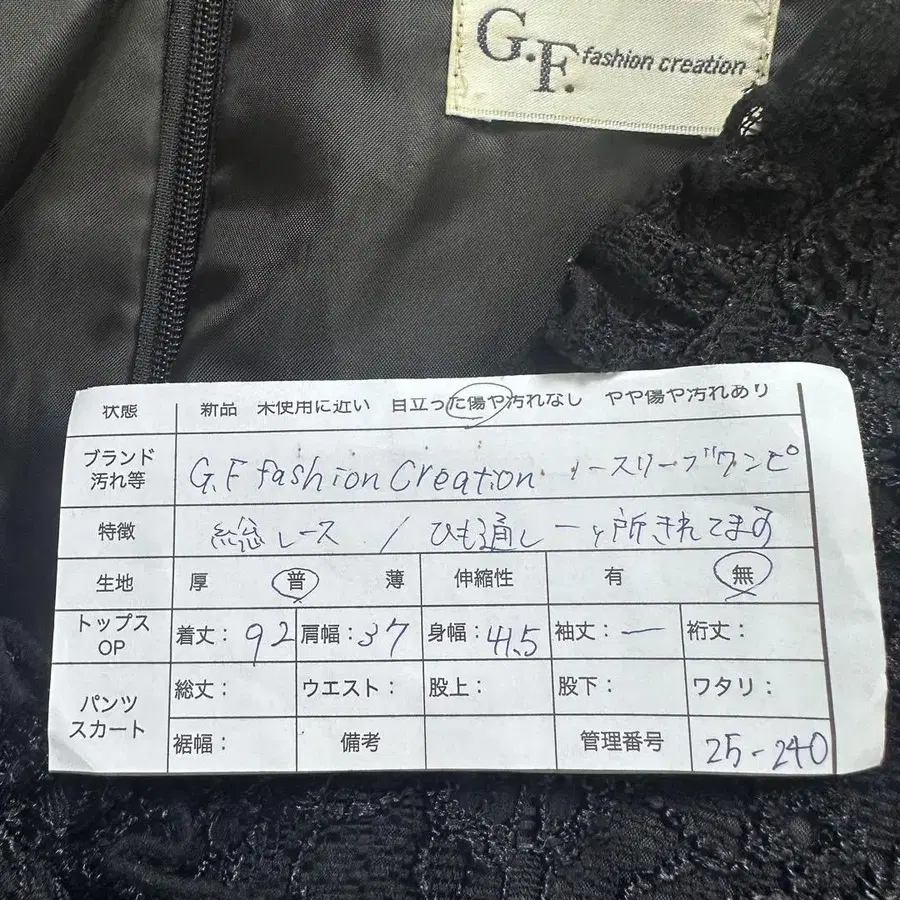 G.F. fashion creation
状態 新品 未使用に近い 目立った傷や汚れなし やや傷や汚れあり
ブランド 汚れ等 G.F fashion Creation ノースリーブワンピ
特徴 総レース / ひも通し一ヶ所きれてます
生地 厚 普 薄 伸縮性 有 無
トップス OP 着丈: 92 肩幅: 37 身幅: 41.5 袖丈: ー 裄丈:
パンツ スカート 総丈: ウエスト: 股上: 股下: ワタリ:
裾幅: 備考 管理番号 25-240